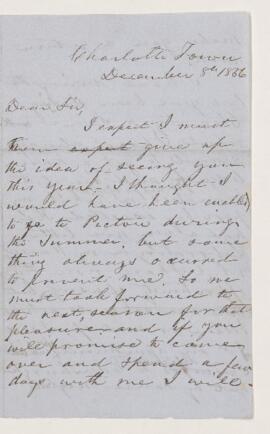 Charlotte Town
December 8th 1866
Dear Sir,
I expect I must
expect give up
the idea of seeing you
this year. I thought I
would have been enabled
to go to Pictou during
the Summer, but some
thing always occured
to prevent me. So we
must look forward to
the next season for that
pleasure and if you
will promise to come
over and spend a few
days with me I will